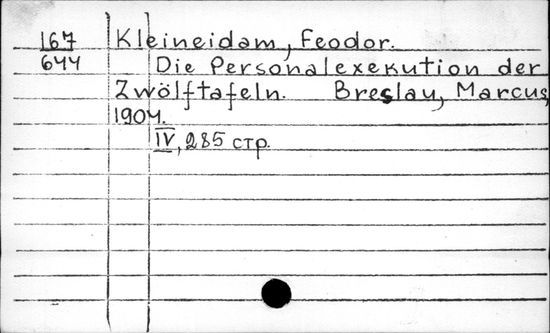 167 Kleineidam, Feodor.
644 Die Personalexekution der
Zwölftafeln. Breslau, Marcus,
1904.
IV, 285 стр.